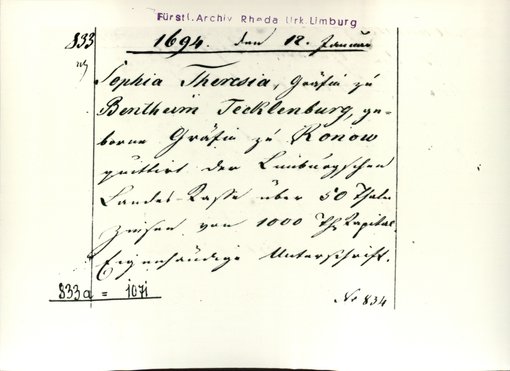 Fürstl. Archiv Rheda Urk. Limburg
833
1694. den 12. Januar
Sophia Theresia, Gräfin zu
Bentheim Tecklenburg, ge-
borne Gräfin zu Ronow
quittirt der Limburgschen
Landes-Kasse über 50 Thaler
Zinsen von 1000 Th. Kapital.
Eigenhändige Unterschrift.
833a = 1071
No 834